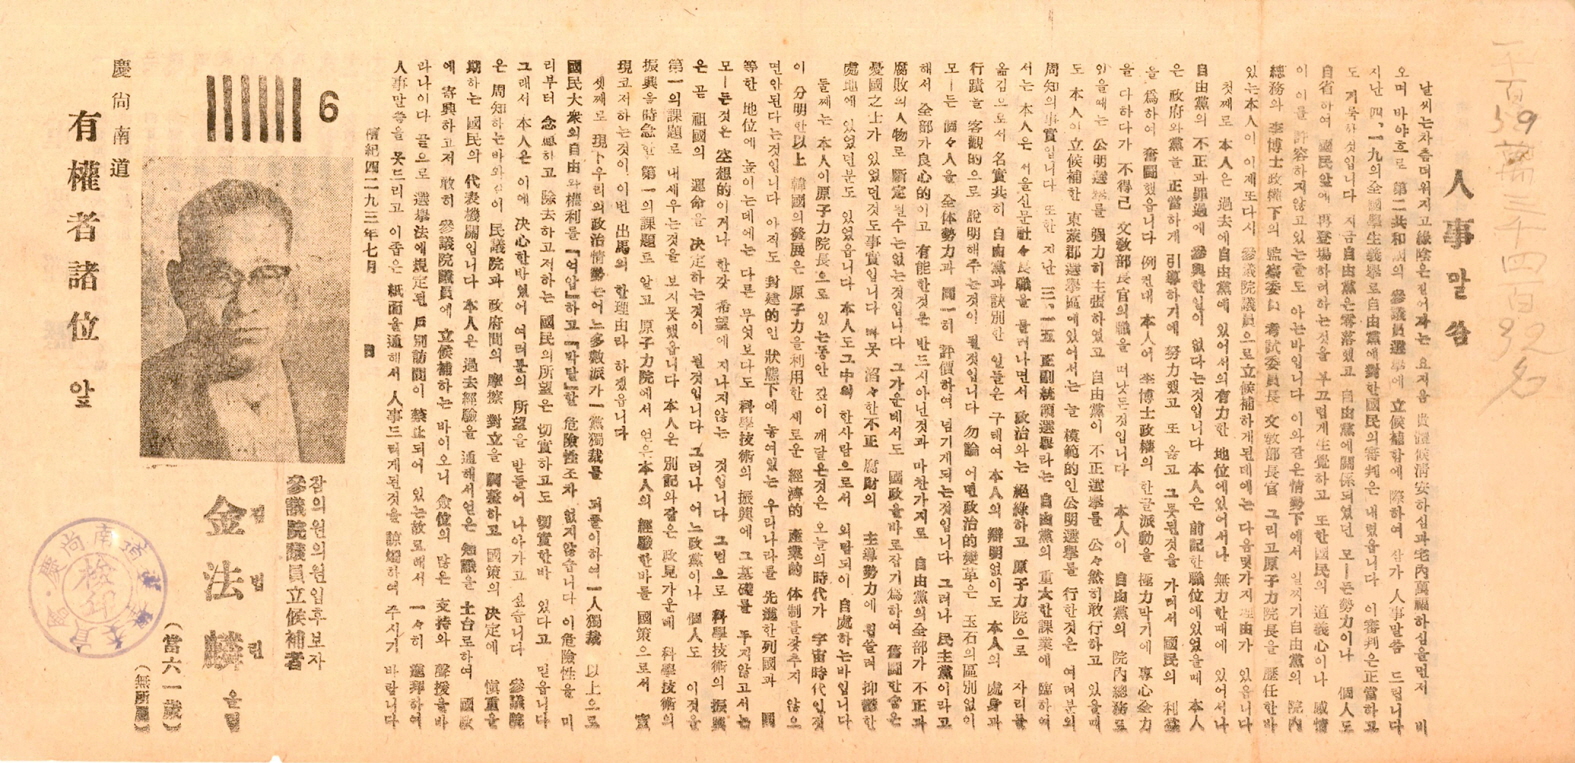 人事말씀
날씨는차츰더워지고綠陰은짙어가는 요지음 貴體候淸安하심과宅內萬福하심을먼저 비
오며 바야흐로 第二共和國의 參議員選擧에 立候補함에 際하여 삼가 人事말씀 드립니다
지난 四、一九의全國學生義擧로自由黨에對한國民의審判은 내렸읍니다 이審判은正當하고
도 거룩하것입니다 지금自由黨은零落했고 自由黨에關係되였던 모—든勢力이나 個人도
自省하여 國民앞에 再登場하려하는것을 부끄럽게生覺하고 또한國民의 道義心이나 感情
이 이를 許容하지않고있는줄도 아는바입니다 이와같은情勢下에서 일찌기自由黨의 院內
總務와 李博士政權下의 監察委員 考試委員長 文敎部長官 그리고原子力院長을 歷任한바
있는本人이 이제또다시 參議院議員으로立候補하게된데에는 다음몇가지理由가 있읍니다
첫째로 本人은 過去自由黨에있어서의有力한 地位에있어서나 無力한때에 있어서나
自由黨의 不正과罪過에 參與한일이 없다는것입니다 本人은 前記한職位에있었을때 本人
은 政府와黨을 正當하게 引導하기에 努力했고 또 옳고 그릇된것을 가려서 國民의 利益
을 爲하여 奮鬪했읍니다 例컨대 本人이 李博士政權의 한글派動을 極力막기에 專心全力
을 다하다가 不得已 文敎部長官의職을 떠났든것입니다 本人이 自由黨의 院內總務로
있을때는 公明選擧를 强力히主張하였고 自由黨이 不正選擧를 公々然히敢行하고 있을때
도 本人이立候補한 東萊郡選擧區에있어서는 늘 模範的인公明選擧를 行한것은 여러분의
周知의事實입니다 또한 지난 三、一五 正副統領選擧라는 自由黨의 重大한課業에 臨하여
서는 本人은 서울신문社々長職을 물러나면서 政治와는 絕緣하고 原子力院으로 자리를
옮김으로서 名實共히 自由黨과訣別한 일들은 구태여 本人의 辯明없이도 本人의 處身과
行蹟을 客觀的으로 說明해주는것이 될것입니다 勿論 어떤政治的變革은 玉石의區別없이
모—든 個々人을 全體勢力과 同一히 評價하여 넘기게되는것입니다 그러나 民主黨이라고
해서 全部가良心的이고 有能한것은 반드시아닌것과 마찬가지로 自由黨의全部가 不正과
腐敗의人物로 斷定될수는없는것입니다 그가운데서도 國政을바로잡기爲하여 奮鬪한숨은
憂國之士가 있었던것도事實입니다 滔々한不正 腐財의 主導勢力에 휩쓸려 抑鬱한
處地에 있었던분도 있었읍니다 本人도그中의 한사람으로서 외람되이 自處하는바입니다
둘째는 本人이原子力院長으로 있는동안 깊이 깨달은것은 오늘의時代가 宇宙時代인것
이 分明한以上 韓國의發展은 原子力을利用한새로운 經濟的 產業的 体制를갖추지 않으
면안된다는것입니다 아직도 封建的인 狀態下에 놓여있는 우리나라를 先進한列國과 同
等한 地位에 높이는데에는 다른 무엇보다도 科學技術의 振興에 그基礎를 두지않고서는
모—든것은 空想的이거나 한갖 希望에 지나지않는 것입니다 그럼으로 科學技術의 振興
은 곧 祖國의 運命을 决定하는것이 될것입니다 그러나 어느政黨이나 個人도 이것을
第一의課題로 내세우는것을 보지못했읍니다 本人은 別記와같은 政見가운데 科學技術의
振興을時急한 第一의課題로 알고 原子力院에서 얻은本人의 經驗한바를 國策으로서 實
現코저하는것이 이번 出馬의 한理由라 하겠읍니다
셋째로 現下우리의政治情勢는어느多數派가一黨獨裁를 되풀이하여一人獨裁 以上으로
國民大衆의自由와權利를『억압』하고『박탈』할 危險性조차 없지않습니다 이危險性을 미
리부터 念慮하고 除去하고저하는 國民의所望은 切實하고도 切實한바 있다고 믿읍니다
그래서 本人은 이에 决心한바있어 여러분의 所望을 받들어 나아가고 싶습니다 參議院
은 周知하는바와같이 民議院과 政府間의 摩擦 對立을 調整하고 國策의 决定에 愼重을
期하는 國民의 代表機關입니다 本人은 過去經驗을 通해서얻은 知識을 土台로하여 國政
에 寄與하고저 敢히 參議院議員에 立候補하는 바이오니 僉位의 많은 支持와 聲援을바
라나이다 끝으로 選擧法에規定된 戶別訪問이 禁止되어 있는故로해서 一々히 進拜하여
人事만씀을못드리고 이줍은 紙面을通해서 人事드리게된것을 諒燭하여 주시기 바랍니다
檀紀四二九三年七月 日
6
참의원의원입후보자
參議院議員立候補者
김법린
金法麟 올림
(當六一歲)
(無所屬)
慶尙南道
有權者諸位 앞
檢印